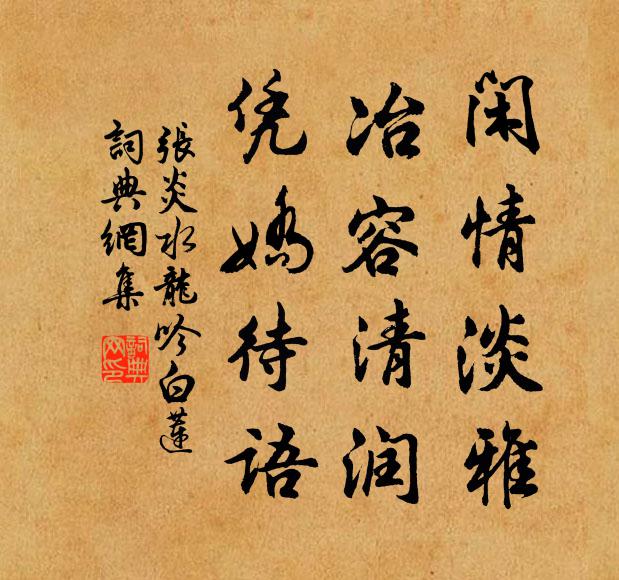 闲情淡雅
冶容清润
凭娇待语
張炎水龍吟白蓮
詞典網集
詞典网印